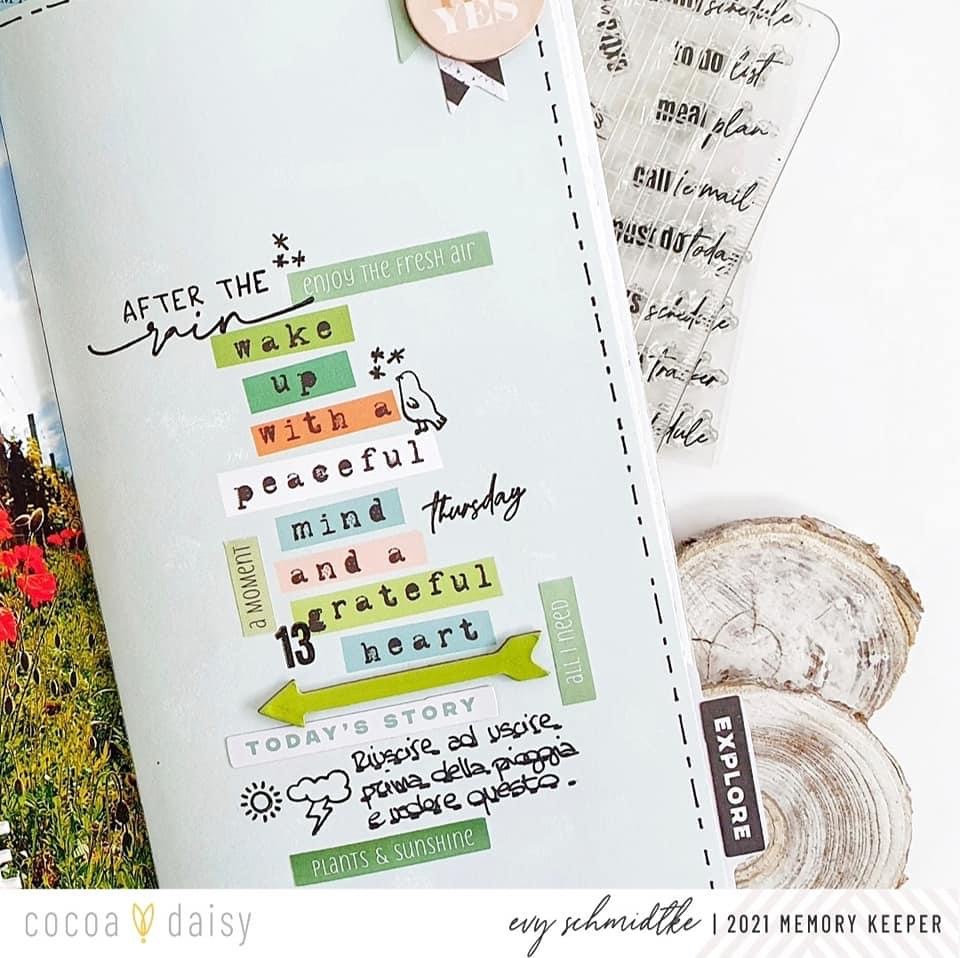 YES
schedule
to do list
meal plan
call / e-mail
must do today
schedule
tracker
AFTER THE
rain
enjoy THE FRESH AIR
wake
up
with a
peaceful
mind
thursday
and a
a MOMENT
grateful
13
heart
ALL I NEED
TODAY'S STORY
Riuscire ad uscire
prima della pioggia
e vedere questo.
PLANTS & SUNSHINE
EXPLORE
cocoa daisy
evy schmidtke | 2021 MEMORY KEEPER